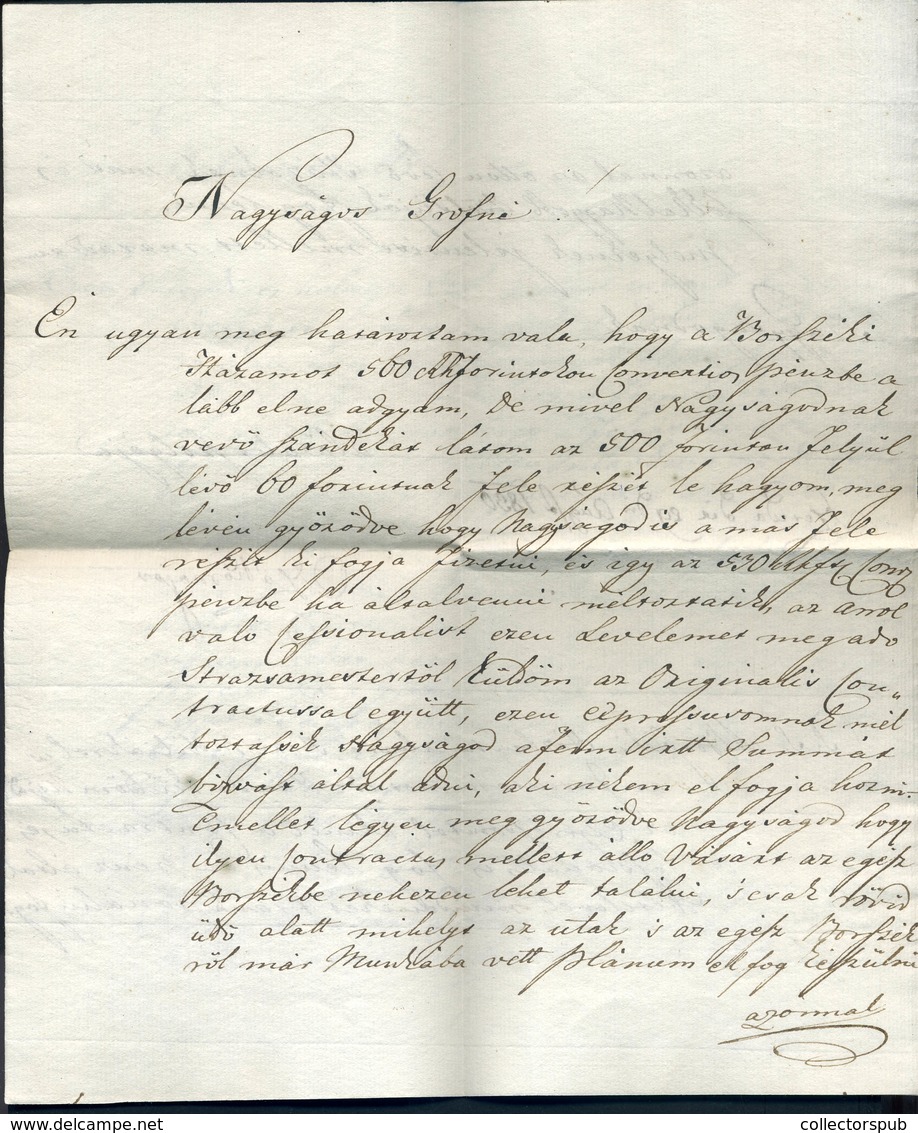 Nagyságos Grofné !
Én ugyan meg határoztam vala, hogy a Borszéki
Házamot 560 Rhforintokon Conventios pénzbe a
lább el ne adgyam, de mivel Nagyságodnak
vevő szándékát látom az 500 forinton felyül
lévő 60 forintnak fele részét le hagyom, meg
lévén győződve hogy Nagyságod is a más fele
részét ki fogja fizetni, és igy az 530 Rhft Conv
pénzbe ha általvenni méltoztatik, az arról
valo Cessionalist ezen Levelemet meg ado
Strázsamestertől küldöm az Originalis Con„
tractussal együtt, ezen expressusomnak mél
toztassék Nagyságod a fenn irtt Summát
bizvást által adni, aki nékem el fogja hozni–
Emellet légyen meg győzödve Nagyságod hogy
ilyen Contractus mellett állo Vásárt az egész
Borszékbe nehezen lehet találni, 's csak rövid
üdő alatt mihelyt az utak 's az egész Borszék
ről már Munkába vett plánum el fog készülni
azonnal
collectorspub